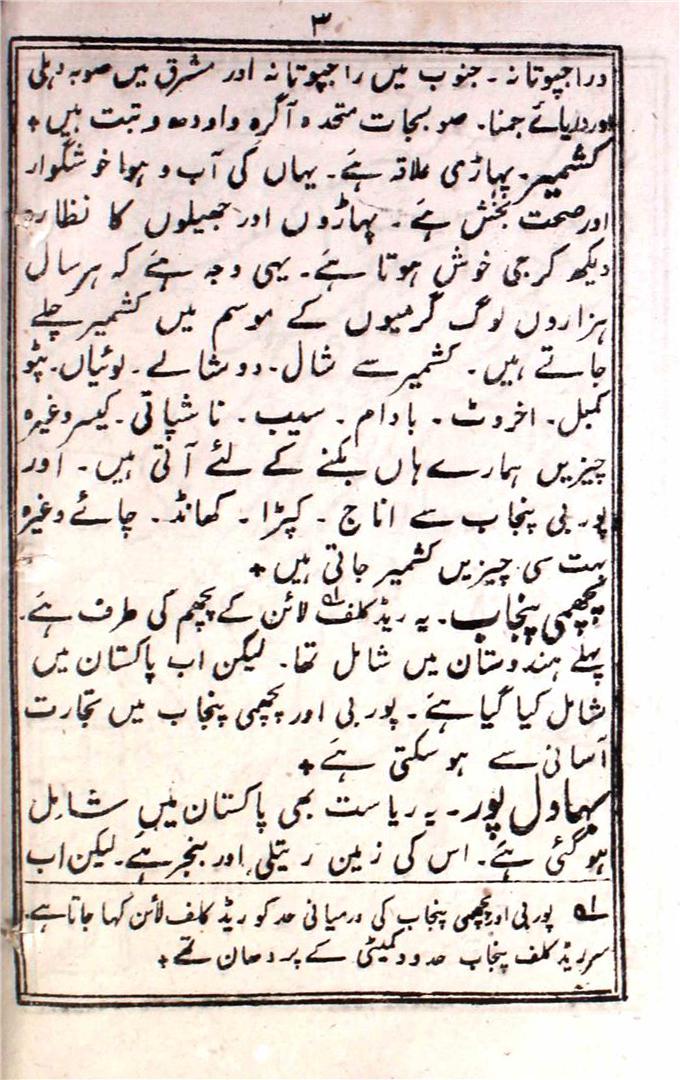 ۳
وراجپوتانہ ۔ جنوب میں راجپوتانہ اور مشرق میں صوبہ دہلی
اور دریائے جمنا۔ صوبجات متحدہ آگرہ و اودھ و تبت ہیں ٭
کشمیر۔ پہاڑی علاقہ ہے۔ یہاں کی آب و ہوا خوشگوار
اور صحت بخش ہے ۔ پہاڑوں اور جھیلوں کا نظارہ
دیکھ کر جی خوش ہوتا ہے۔ یہی وجہ ہے کہ ہر سال
ہزاروں لوگ گرمیوں کے موسم میں کشمیر چلے
جاتے ہیں۔ کشمیر سے شال۔ دوشالے۔ لوئیاں۔ پٹو
کمبل۔ اخروٹ ۔ بادام ۔ سیب ۔ ناشپاتی ۔ کیسر وغیرہ
چیزیں ہمارے ہاں بکنے کے لئے آتی ہیں۔ اور
پوربی پنجاب سے اناج ۔ کپڑا ۔ کھانڈ۔ چائے وغیرہ
بہت سی چیزیں کشمیر جاتی ہیں ٭
پچھمی پنجاب ۔ یہ ریڈ کلف لہ لائن کے پچھم کی طرف ہے۔
پہلے ہندوستان میں شامل تھا۔ لیکن اب پاکستان میں
شامل کیا گیا ہے ۔ پوربی اور پچھمی پنجاب میں تجارت
آسانی سے ہو سکتی ہے ٭
بہاول پور۔ یہ ریاست بھی پاکستان میں شامل
ہو گئی ہے۔ اس کی زمین ریتلی اور بنجر ہے۔ لیکن اب
لہ پوربی اور پچھمی پنجاب کی درمیانی حد کو ریڈ کلف لائن کہا جاتا ہے۔
سر ریڈ کلف پنجاب حدود کمیٹی کے پردھان تھے ٭